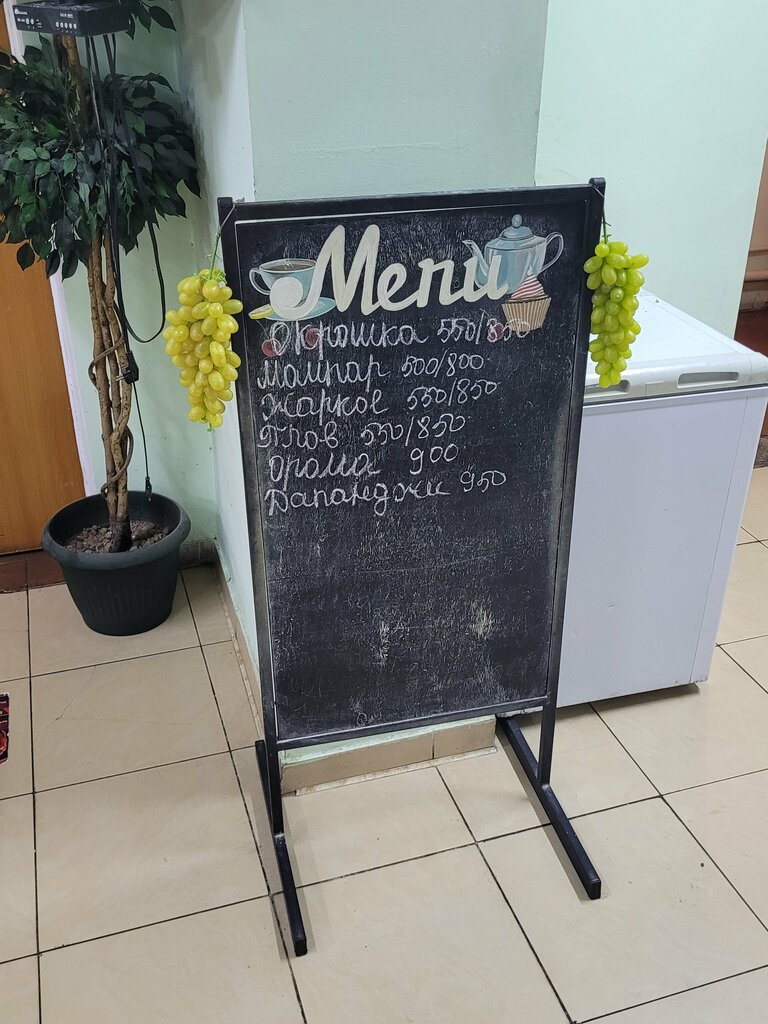 Menu
Окрошка 550/850
Мампар 500/800
Жаркое 550/850
Плов 550/850
Орама 900
Дапанджи 950